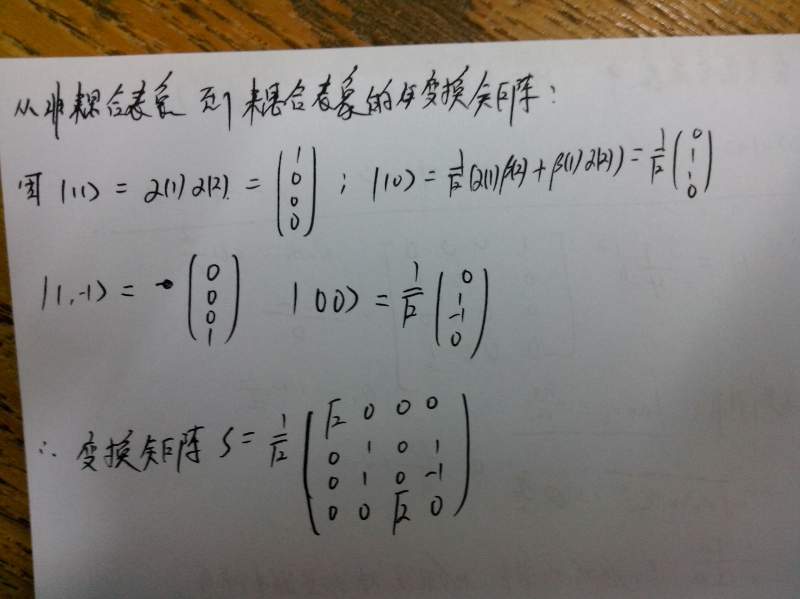 从非耦合表象到耦合表象的变换矩阵:
因 |11> = α(1)α(2) = (1 0 0 0) ; |10> = 1/√2 (α(1)β(2) + β(1)α(2)) = 1/√2 (0 1 1 0)
|1,-1> = (0 0 0 1) |00> = 1/√2 (0 1 -1 0)
∴ 变换矩阵 S = 1/√2 (√2 0 0 0
0 1 0 1
0 1 0 -1
0 0 √2 0)